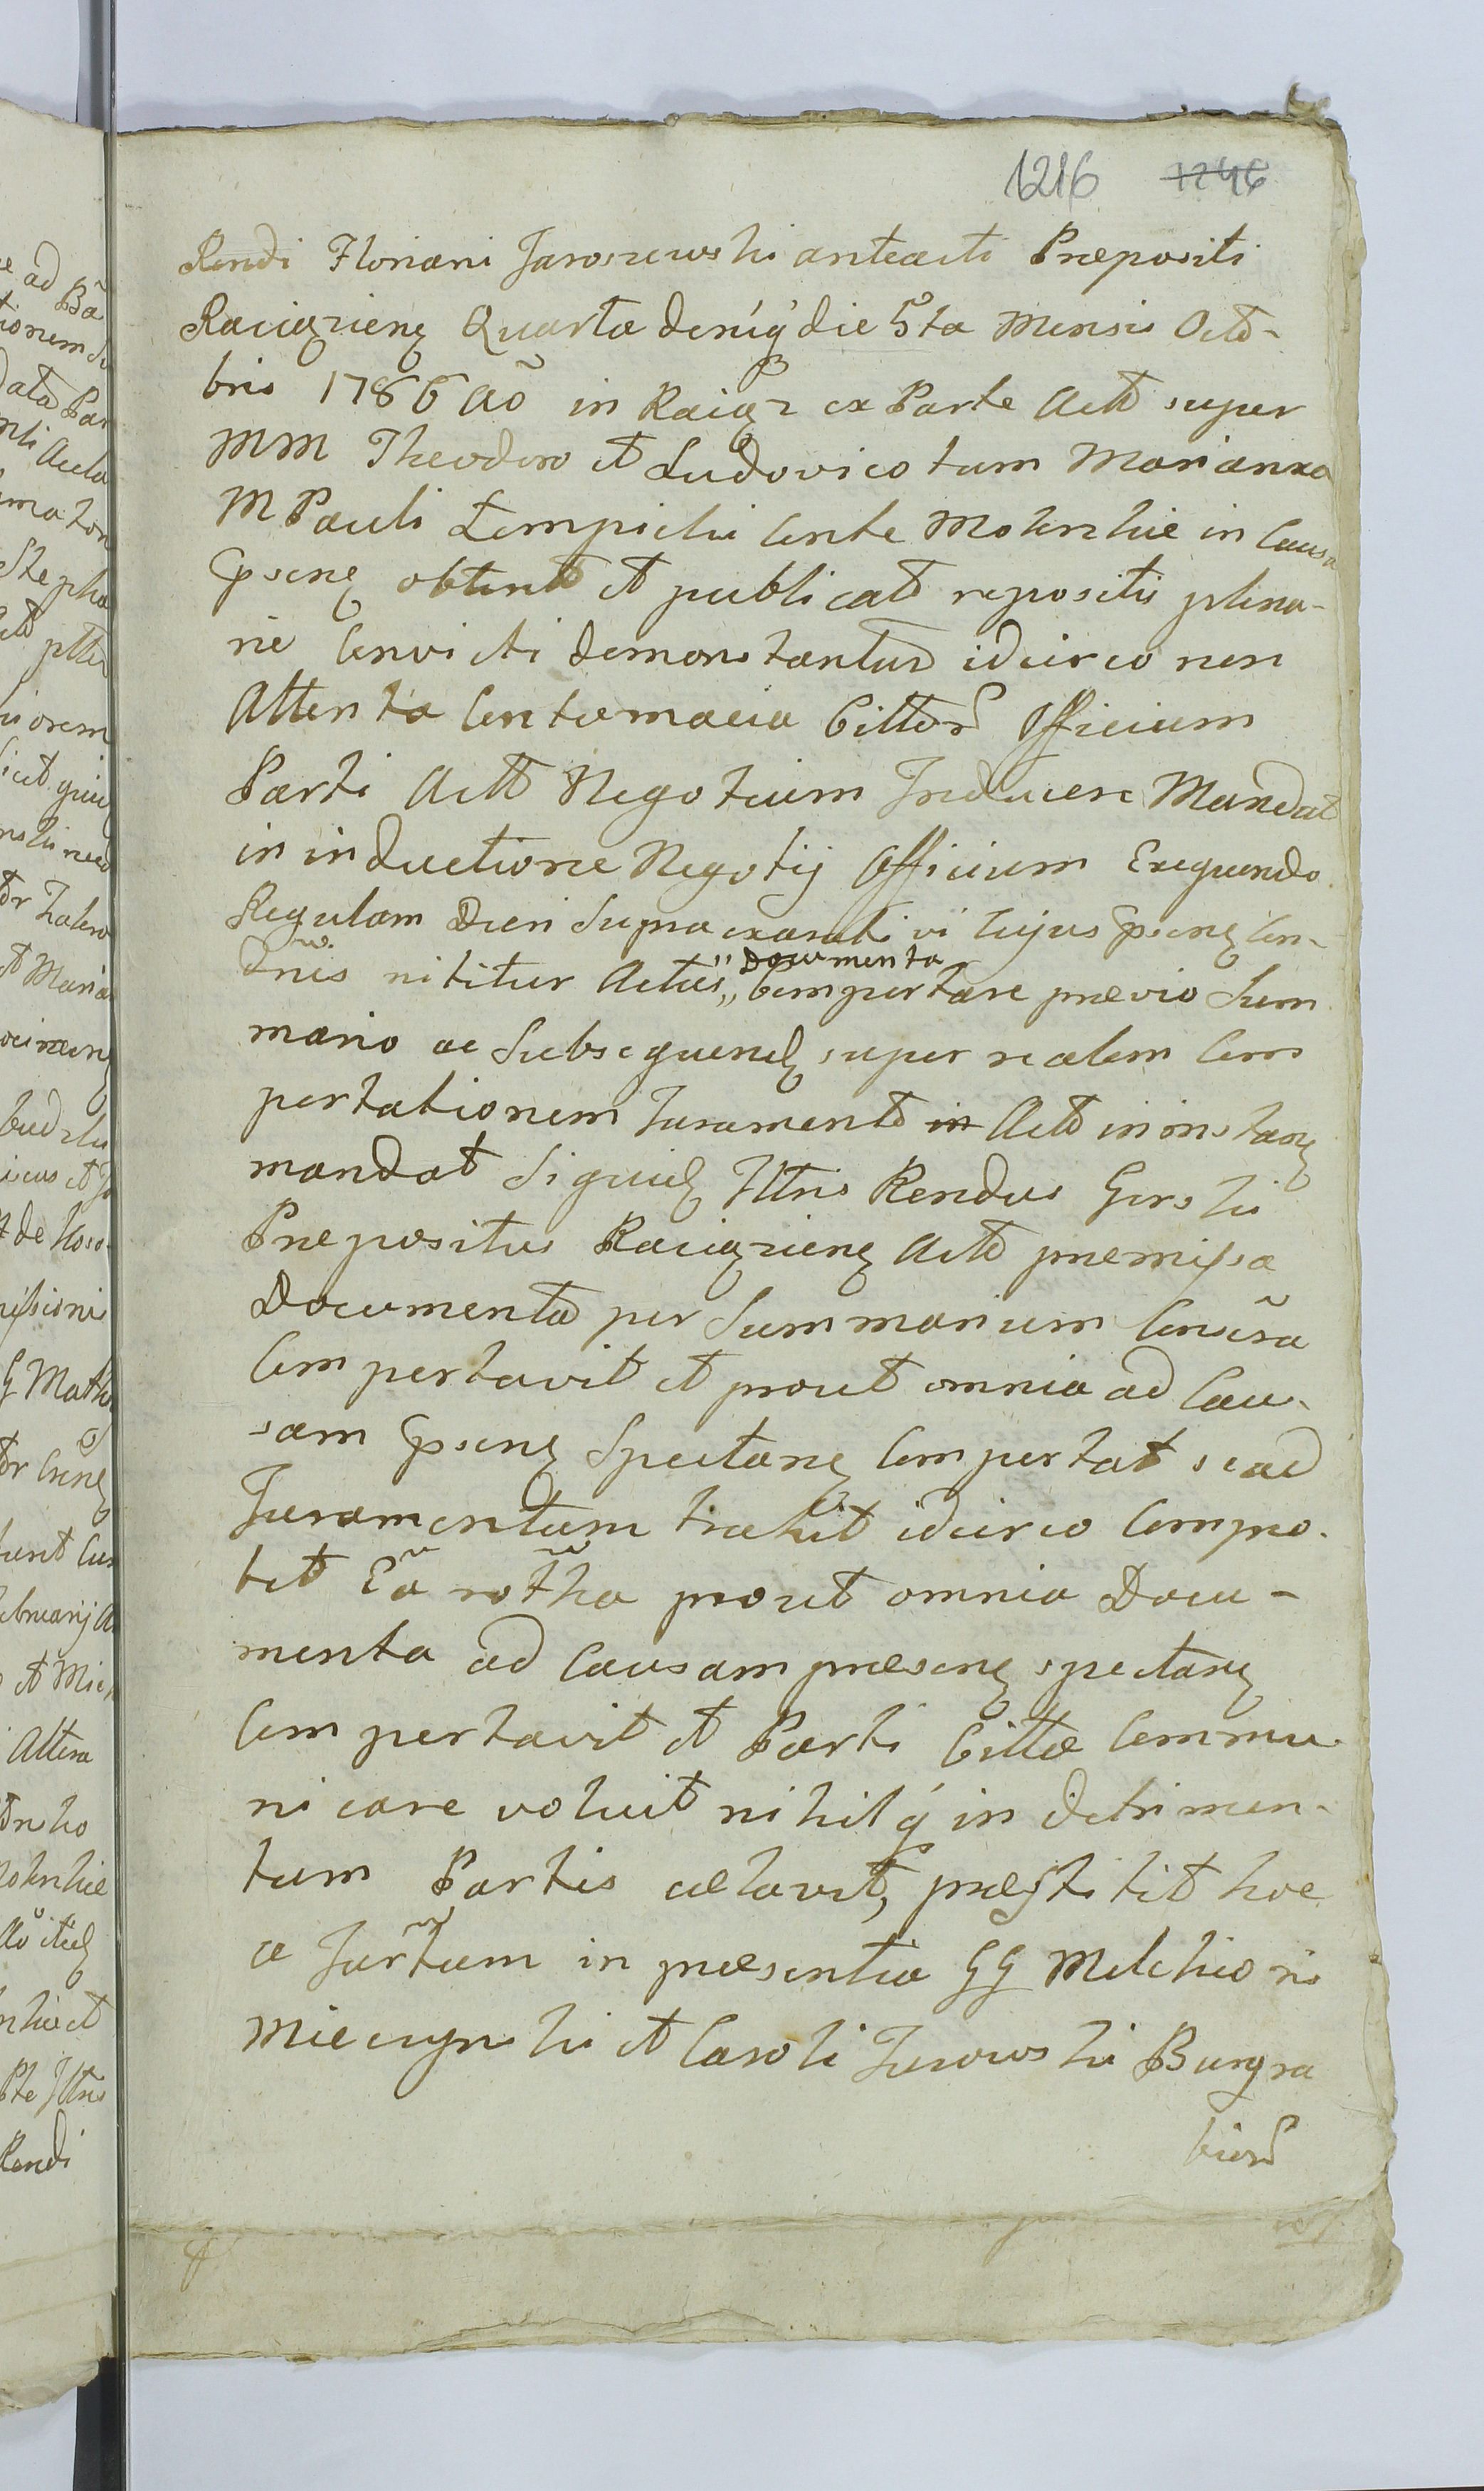 1216 1246
Rendi Floriani Jaroszewski anteacti Præpositi
Raciązienȩ Quarta deniq́ die 5ta Mensis Octo-
bris 1786 Aõ in Raciąz ex Parte Acto super
MM Theodoro et Ludovico tum Marianna
M Pauli Łempicki Conte Mokrskie in Causa
Ppsenȩ obtent et publicat repositis plena-
rie Convicti demonstrantur idcirco non
Attenta Contumacia Cittor Officium
Parti Acto Negotium Inducere Mandat
in inductione Negotij Officium Exequendo
Regulam Dieri Supra exarati vi cujus Ppsenȩ Con-
dnis nititur Actus,, Documenta Comportare prævio Sum
mario ac Subsequenȩ super realem Com
portationem Juramento in Acto in instanȩ
mandat Siquidȩ Illris Rendus Gorski
Præpositus Raciązienȩ Acto præmissa
Documenta per Summarium Consčra
Comportavit et prout omnia ad Cau-
sam Ppsenȩ Spectanȩ Comportat se ad
Juramentum trahit idcirco Compro-
bet Eã rot̃ha prout omnia Docu-
menta ad Causam præsenȩ spectanȩ
Comportavit et Parti Cittæ Commu-
nicare voluit nihilq́ in detrimen-
tum Partis celavit, præstitit hoc
ce Jur̃tum in præsentia GG Melchioris
Mieczynski et Caroli Jurowski Burgra
bior